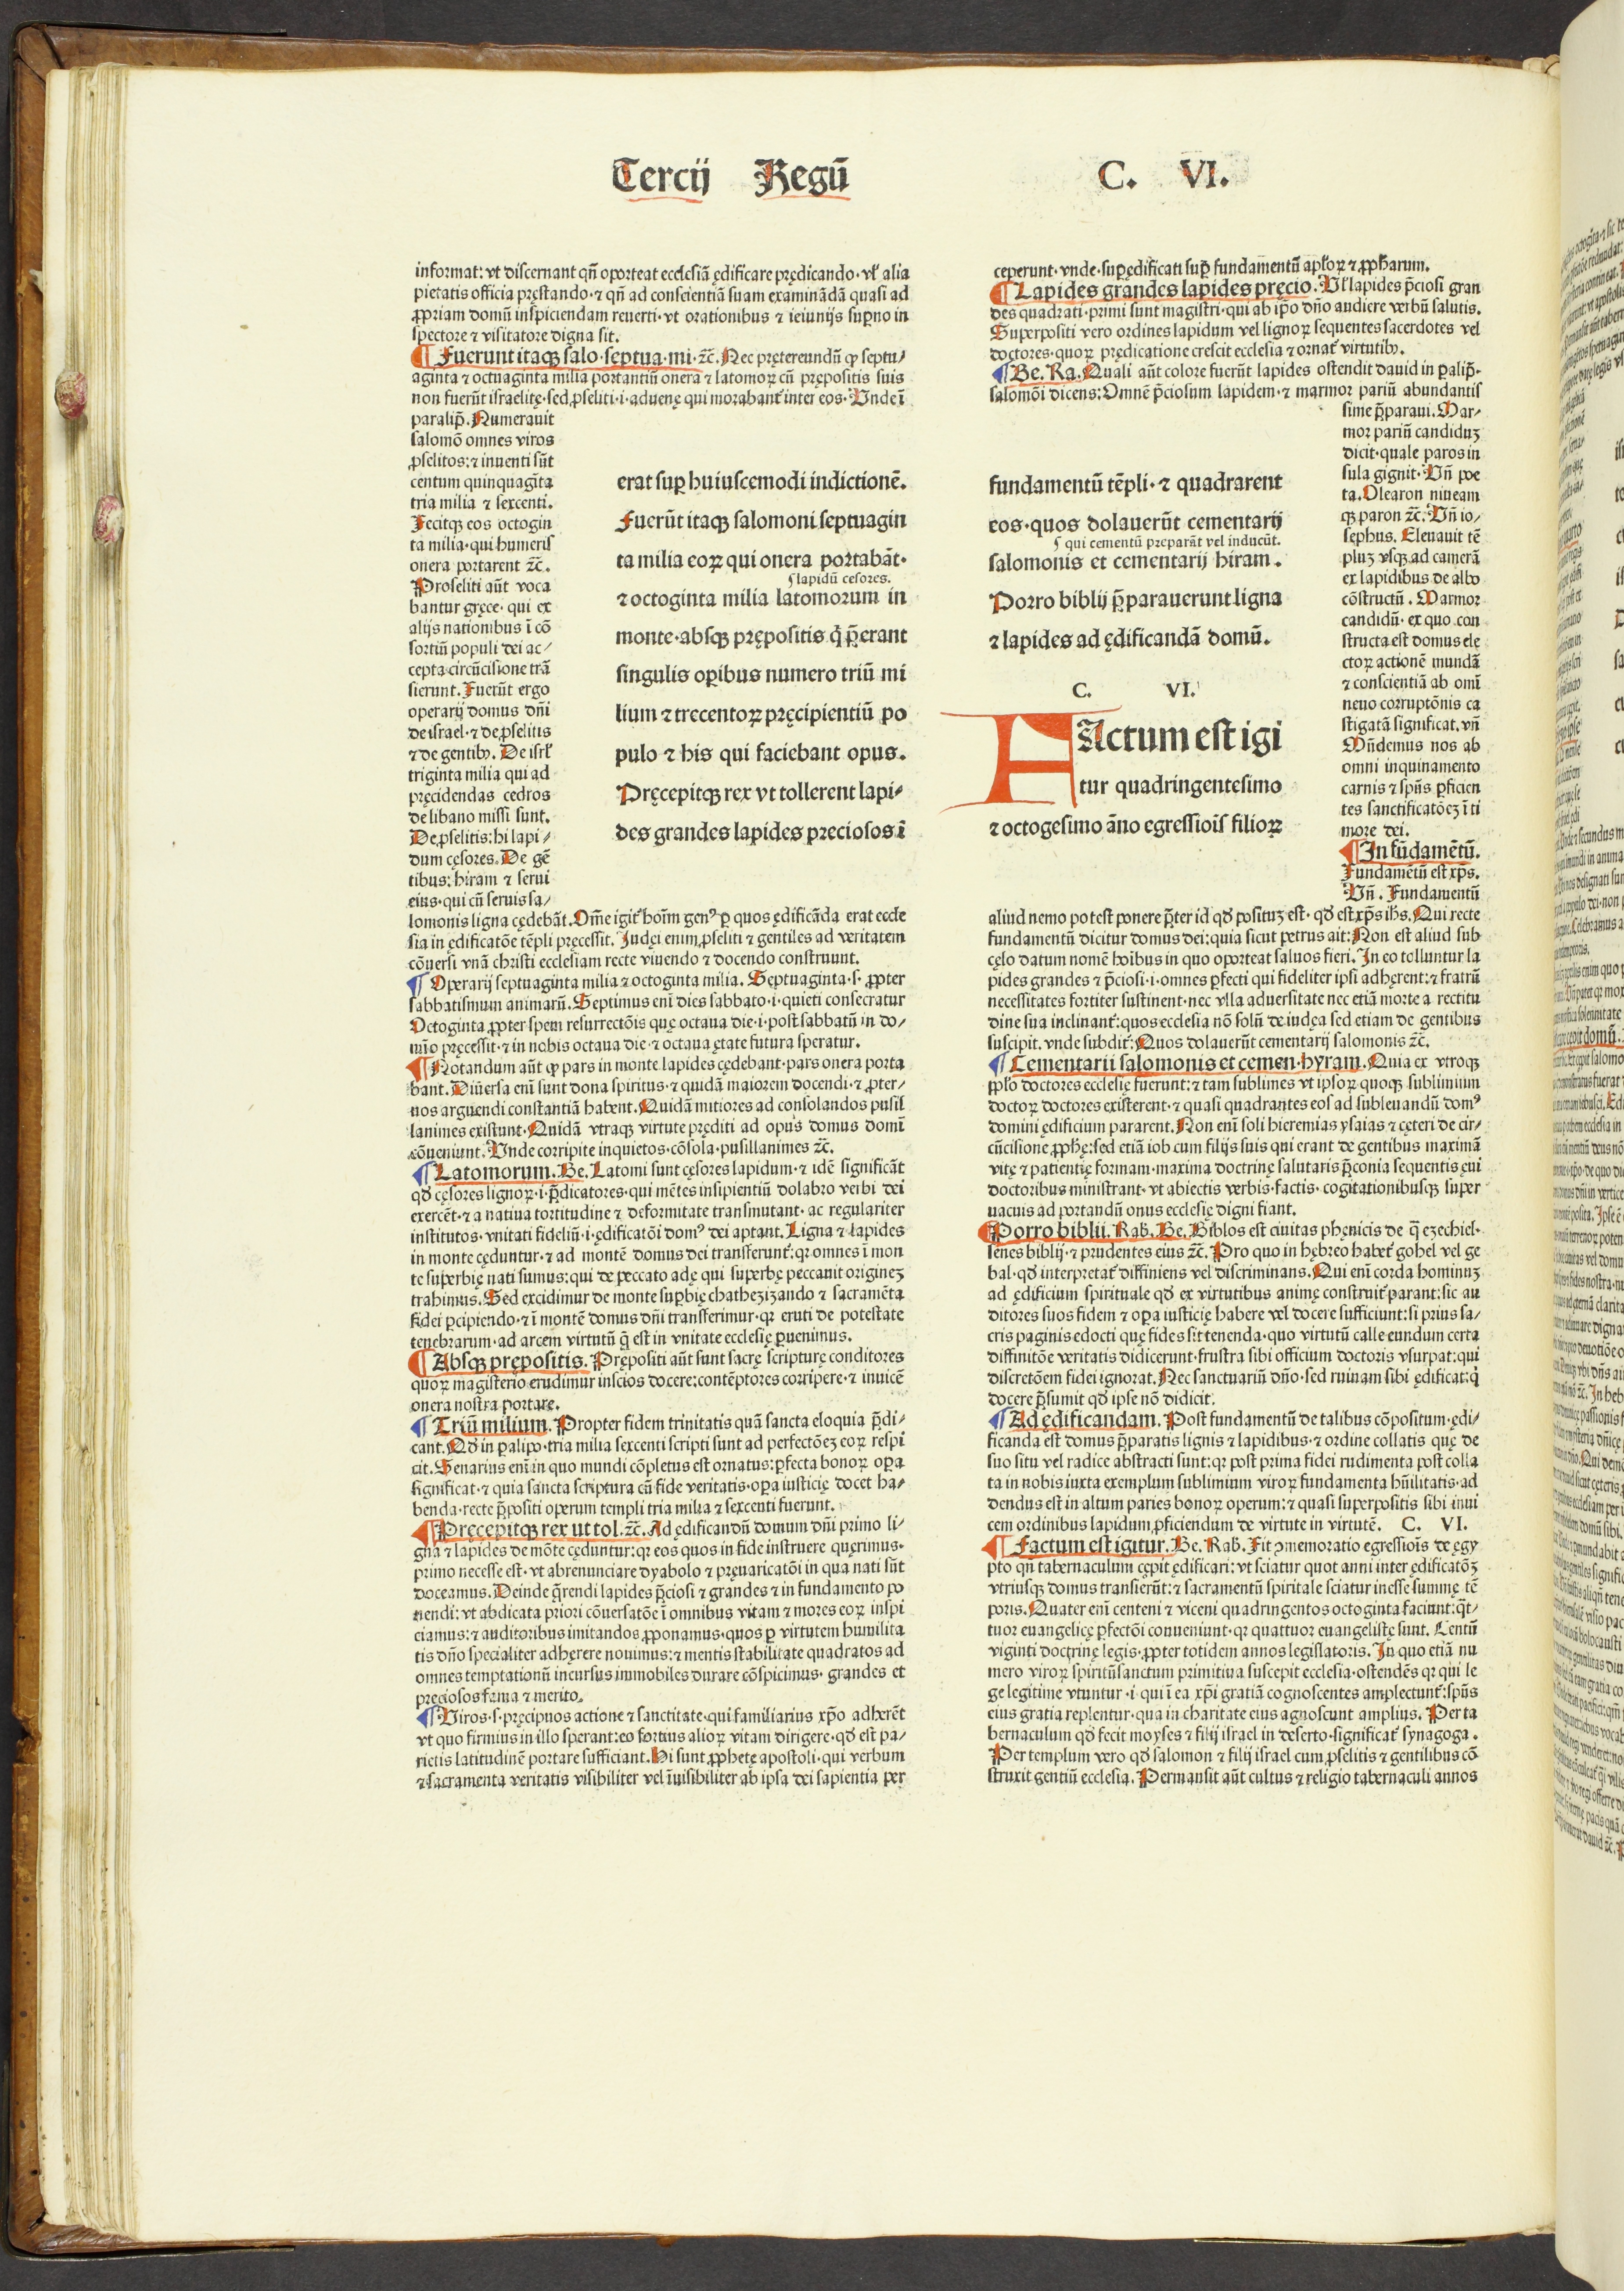 Tercij Regū C. VI.
informat: vt discernant qn̄ oporteat ecclesiā ędificare prędicando· vl' alia
pietatis officia pręstando· ⁊ qn̄ ad conscientiā suam examinādā quasi ad
ꝓpriam domū inspiciendam reuerti· vt orationibus ⁊ ieiunijs suꝑno in
spectore ⁊ visitatore digna sit.
¶ Fuerunt itaqꝫ salo· septua· mi· ⁊c̄. Nec prętereundū ꝙ septu/
aginta ⁊ octuaginta milia portantiū onera ⁊ latomoꝝ cū prępositis suis
non fuerūt israelitę· sed ꝓseliti· i· aduenę qui morabant᷑ inter eos· Unde ī
paralip̄. Numerauit
salomō omnes viros
ꝓselitos: ⁊ inuenti sūt
centum quinquagīta
tria milia ⁊ sexcenti.
Fecitqꝫ eos octogin
ta milia· qui humeris
onera portarent ⁊c̄.
Proseliti aūt voca
bantur gręce· qui ex
alijs nationibus ī cō
sortiū populi dei ac/
cepta circūcisione trā
sierunt. Fuerūt ergo
operarij domus dn̄i
de israel· ⁊ de ꝓselitis
⁊ de gentibꝰ. De isrl'
triginta milia qui ad
pręcidendas cedros
de libano missi sunt.
De ꝓselitis: hi lapi/
dum cęsores. De gē
tibus: hiram ⁊ serui
eius· qui cū seruis sa/
lomonis ligna cędebāt. Om̄e igit᷑ hoīm genꝰ ꝑ quos ędificāda erat eccle
sia in edificatōe tēpli pręcessit. Judęi enim ꝓseliti ⁊ gentiles ad veritatem
cōuersi vnā christi ecclesiam recte viuendo ⁊ docendo construunt.
¶ Operarij septuaginta milia ⁊ octoginta milia. Septuaginta· s· ꝓpter
sabbatismum animarū. Septimus enī dies sabbato· i· quieti consecratur
Octoginta ꝓpter spem resurrectōis quę octaua die· i· post sabbatū in do/
mīo pręcessit· ⁊ in nobis octaua die· ⁊ octaua ętate futura speratur.
¶ Notandum aūt ꝙ pars in monte lapides cędebant· pars onera porta
bant. Diuersa enī sunt dona spiritus· ⁊ quidā maiorem docendi· ⁊ ꝓter/
uos arguendi constantiā habent. Quidā mitiores ad consolandos pusil
lanimes existunt· Quidā vtraqꝫ virtute pręditi ad opus domus domī
cōueniunt. Unde corripite inquietos· cōsola· pusillanimes ⁊c̄.
¶ Latomorum. Be. Latomi sunt cęsores lapidum· ⁊ idē significāt
qd̄ cęsores lignoꝝ· i· p̄dicatores· qui mētes insipientiū dolabro verbi dei
exercēt· ⁊ a natiua tortitudine ⁊ deformitate transmutant· ac regulariter
institutos· vnitati fideliū· i· ędificatōi domꝰ dei aptant. Ligna ⁊ lapides
in monte cęduntur· ⁊ ad montē domus dei transferunt᷑: qꝛ omnes ī mon
te superbię nati sumus: qui de peccato adę qui superbę peccauit origineꝫ
trahimus. Sed excidimur de monte suꝑbię chathezizando ⁊ sacramēta
fidei ꝑcipiendo· ⁊ ī montē domus dn̄i transferimur· qꝛ eruti de potestate
tenebrarum· ad arcem virtutū q̄ est in vnitate ecclesię ꝑuenimus.
¶ Absqꝫ prępositis. Prępositi aūt sunt sacrę scripturę conditores
quoꝝ magisterio erudimur inscios docere: contēptores corripere· ⁊ inuicē
onera nostra portare.
¶ Triū milium. Propter fidem trinitatis quā sancta eloquia p̄di/
cant. Qd̄ in ꝑalipo· tria milia sexcenti scripti sunt ad perfectōeꝫ eoꝝ respi
cit. Senarius enī in quo mundi cōpletus est ornatus: ꝑfecta bonoꝝ oꝑa
significat· ⁊ quia sancta scriptura cū fide veritatis· oꝑa iusticię docet ha/
benda· recte p̄positi operum templi tria milia ⁊ sexcenti fuerunt.
¶ Pręcepitqꝫ rex ut tol. ⁊c̄. Ad ędificandū domum dn̄i primo li/
gna ⁊ lapides de mōte cęduntur: qꝛ eos quos in fide instruere quęrimus·
primo necesse est· vt abrenunciare dyabolo ⁊ pręuaricatōi in qua nati sūt
doceamus. Deinde q̄rendi lapides p̄ciosi ⁊ grandes ⁊ in fundamento po
nendi: vt abdicata priori cōuersatōe ī omnibus vitam ⁊ mores eoꝝ inspi
ciamus: ⁊ auditoribus imitandos ꝓponamus· quos ꝑ virtutem humilita
tis dn̄o specialiter adhęrere nouimus: ⁊ mentis stabilitate quadratos ad
omnes temptationū incursus immobiles durare cōspicimus· grandes et
preciosos fama ⁊ merito.
¶ Viros· s· pręcipuos actione ⁊ sanctitate· qui familiarius xp̄o adherēt
vt quo firmius in illo sperant: eo fortius alioꝝ vitam dirigere· qd̄ est pa/
rietis latitudinē portare sufficiant. Hi sunt ꝓphetę apostoli· qui verbum
⁊ sacramenta veritatis visibiliter vel īuisibiliter ab ipsa dei sapientia per
erat suꝑ huiuscemodi indictionē.
Fuerūt itaqꝫ salomoni septuagin
ta milia eoꝝ qui onera portabāt·
s lapidū cesores.
⁊ octoginta milia latomorum in
monte· absqꝫ prępositis q̇ p̄erant
singulis oꝑibus numero triū mi
lium ⁊ trecentoꝝ pręcipientiū po
pulo ⁊ his qui faciebant opus.
Pręcepitqꝫ rex vt tollerent lapi/
des grandes lapides preciosos ī
ceperunt· vnde· suꝑędificati suꝑ fundamentū apl'oꝝ ⁊ ꝓph'arum.
¶ Lapides grandes lapides pręcio. Ul' lapides p̄ciosi gran
des quadrati· primi sunt magistri· qui ab ip̄o dn̄o audiere verbū salutis.
Superpositi vero ordines lapidum vel lignoꝝ sequentes sacerdotes vel
doctores· quoꝝ prędicatione crescit ecclesia ⁊ ornat᷑ virtutibꝰ.
¶ Be. Ra. Quali aūt colore fuerūt lapides ostendit dauid in ꝑalip̄·
salomōi dicens: Omnē p̄ciosum lapidem· ⁊ marmor pariū abundantis
sime p̄paraui. Mar/
mor pariū candiduꝫ
dicit· quale paros in
sula gignit· Un̄ poe
ta. Olearon niueam
qꝫ paron ⁊c̄. Un̄ io/
sephus. Eleuauit tē
pluꝫ vsqꝫ ad camerā
ex lapidibus de albo
cōstructū. Marmor
candidū· ex quo con
structa est domus ele
ctoꝝ actionē mundā
⁊ conscientiā ab omī
neuo corruptōnis ca
stigatā significat. vn̄
Mūdemus nos ab
omni inquinamento
carnis ⁊ spūs ꝑficien
tes sanctificatōeꝫ ī ti
more dei.
¶ In fūdamētū.
Fundamētū est xp̄s.
Un̄. Fundamentū
aliud nemo potest ponere p̄ter id qd̄ posituꝫ est· qd̄ est xp̄s ih̄s. Qui recte
fundamentū dicitur domus dei: quia sicut petrus ait: Non est aliud sub
cęlo datum nomē hoībus in quo oporteat saluos fieri. In eo tolluntur la
pides grandes ⁊ p̄ciosi· i· omnes ꝑfecti qui fideliter ipsi adhęrent: ⁊ fratrū
necessitates fortiter sustinent· nec vlla aduersitate nec etiā morte a rectitu
dine sua inclinant᷑: quos ecclesia nō solū de iudęa sed etiam de gentibus
suscipit. vnde subdit᷑: Quos dolauerūt cementarij salomonis ⁊c̄.
¶ Cementarii salomonis et cemen· hyram. Quia ex vtroqꝫ
ppl'o doctores ecclesię fuerunt: ⁊ tam sublimes vt ipsoꝝ quoqꝫ sublimium
doctoꝝ doctores existerent· ⁊ quasi quadrantes eos ad subleuandū domꝰ
domini ędificium pararent. Non enī soli hieremias ysaias ⁊ cęteri de cir/
cūcisione ꝓphę: sed etiā iob cum filijs suis qui erant de gentibus maximā
vitę ⁊ patientię formam· maxima doctrinę salutaris p̄conia sequentis ęui
doctoribus ministrant· vt abiectis verbis· factis· cogitationibusqꝫ super
uacuis ad portandū onus ecclesię digni fiant.
¶ Porro biblii. Rab. Be. Biblos est ciuitas phęnicis de q̄ ezechiel·
senes biblij· ⁊ prudentes eius ⁊c̄. Pro quo in hębreo habet᷑ gobel vel ge
bal· qd̄ interpretat᷑ diffiniens vel discriminans. Qui enī corda hominuꝫ
ad ędificium spirituale qd̄ ex virtutibus animę construit᷑ parant: sic au
ditores suos fidem ⁊ oꝑa iusticię habere vel docere sufficiunt: si prius sa/
cris paginis edocti quę fides sit tenenda· quo virtutū calle eundum certa
diffinitōe veritatis didicerunt· frustra sibi officium doctoris vsurpat: qui
discretōem fidei ignorat. Nec sanctuariū dn̄o· sed ruinam sibi ędificat: q̇
docere p̄sumit qd̄ ipse nō didicit.
¶ Ad ędificandam. Post fundamentū de talibus cōpositum· ędi/
ficanda est domus p̄paratis lignis ⁊ lapidibus· ⁊ ordine collatis quę de
suo situ vel radice abstracti sunt: qꝛ post prima fidei rudimenta post colla
ta in nobis iuxta exemplum sublimium viroꝝ fundamenta hūilitatis· ad
dendus est in altum paries bonoꝝ operum: ⁊ quasi superpositis sibi inui
cem ordinibus lapidum ꝓficiendum de virtute in virtutē. C. VI.
¶ Factum est igitur. Be. Rab. Fit ꝯmemoratio egressiōis de ęgy
pto qn̄ tabernaculum cępit ędificari: vt sciatur quot anni inter ędificatōꝫ
vtriusqꝫ domus transierūt: ⁊ sacramentū spiritale sciatur inesse summę tē
poris. Quater enī centeni ⁊ viceni quadringentos octoginta faciunt: q̄t/
tuor euangelicę ꝑfectōi conueniunt· qꝛ quattuor euangelistę sunt. Centū
viginti doctrinę legis· ꝓpter totidem annos legislatoris. In quo etiā nu
mero viroꝝ spiritūsanctum primitiua suscepit ecclesia· ostendēs qꝛ qui le
ge legitime vtuntur· i· qui ī ea xp̄i gratiā cognoscentes amplectunt᷑: spūs
eius gratia replentur· qua in charitate eius agnoscunt amplius. Per ta
bernaculum qd̄ fecit moyses ⁊ filij israel in deserto· significat᷑ synagoga.
Per templum vero qd̄ salomon ⁊ filij israel cum ꝓselitis ⁊ gentilibus cō
struxit gentiū ecclesia. Permansit aūt cultus ⁊ religio tabernaculi annos
fundamentū tēpli· ⁊ quadrarent
eos· quos dolauerūt cementarij
s qui cementū preparāt vel inducūt.
salomonis et cementarij hiram.
Porro biblij p̄parauerunt ligna
⁊ lapides ad ędificandā domū.
C. VI.
FActum est igi
tur quadringentesimo
⁊ octogesimo āno egressiōis filioꝝ